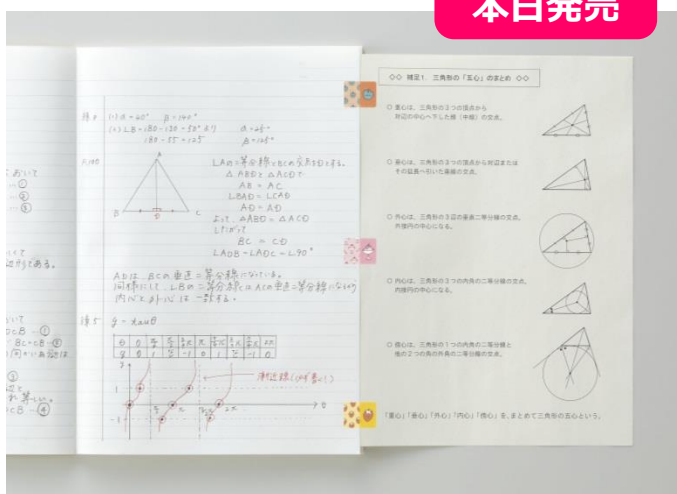 本日発売
おいて
①
②
③
いて
辺形である。
おいて
①
②
③
④
(1) α = 60° β = 140°
(2) ∠B = 180 - 130 = 50° より α = 25°
180 - 55 = 125 β = 125°
A
B
D
C
∠Aの二等分線とBCの交点をDとする。
△ABDと△ACDで
AB = AC
∠BAD = ∠CAD
AD = AD
よって、△ABD = △ACD
したがって
BC = CD
∠ADB = ∠ADC = ∠90°
ADは、BCの垂直二等分線になっている。
同様にして、∠Bの二等分線はACの垂直二等分線になるから
内心と外心は一致する。
練5 y = tanθ
θ 0
2π
y 0 1
-1 0 1
-1 0
y
1
漸近線
-1
π
2π
θ
◇◇ 補足1. 三角形の「五心」のまとめ ◇◇
○ 重心は、三角形の3つの頂点から
対辺の中心へ下した線（中線）の交点。
○ 垂心は、三角形の3つの頂点から対辺または
その延長へ引いた垂線の交点。
○ 外心は、三角形の3辺の垂直二等分線の交点。
外接円の中心になる。
○ 内心は、三角形の3つの内角の二等分線の交点。
内接円の中心になる。
○ 傍心は、三角形の1つの内角の二等分線と
他の2つの角の外角の二等分線の交点。
「重心」「垂心」「外心」「内心」「傍心」を、まとめて三角形の五心という。